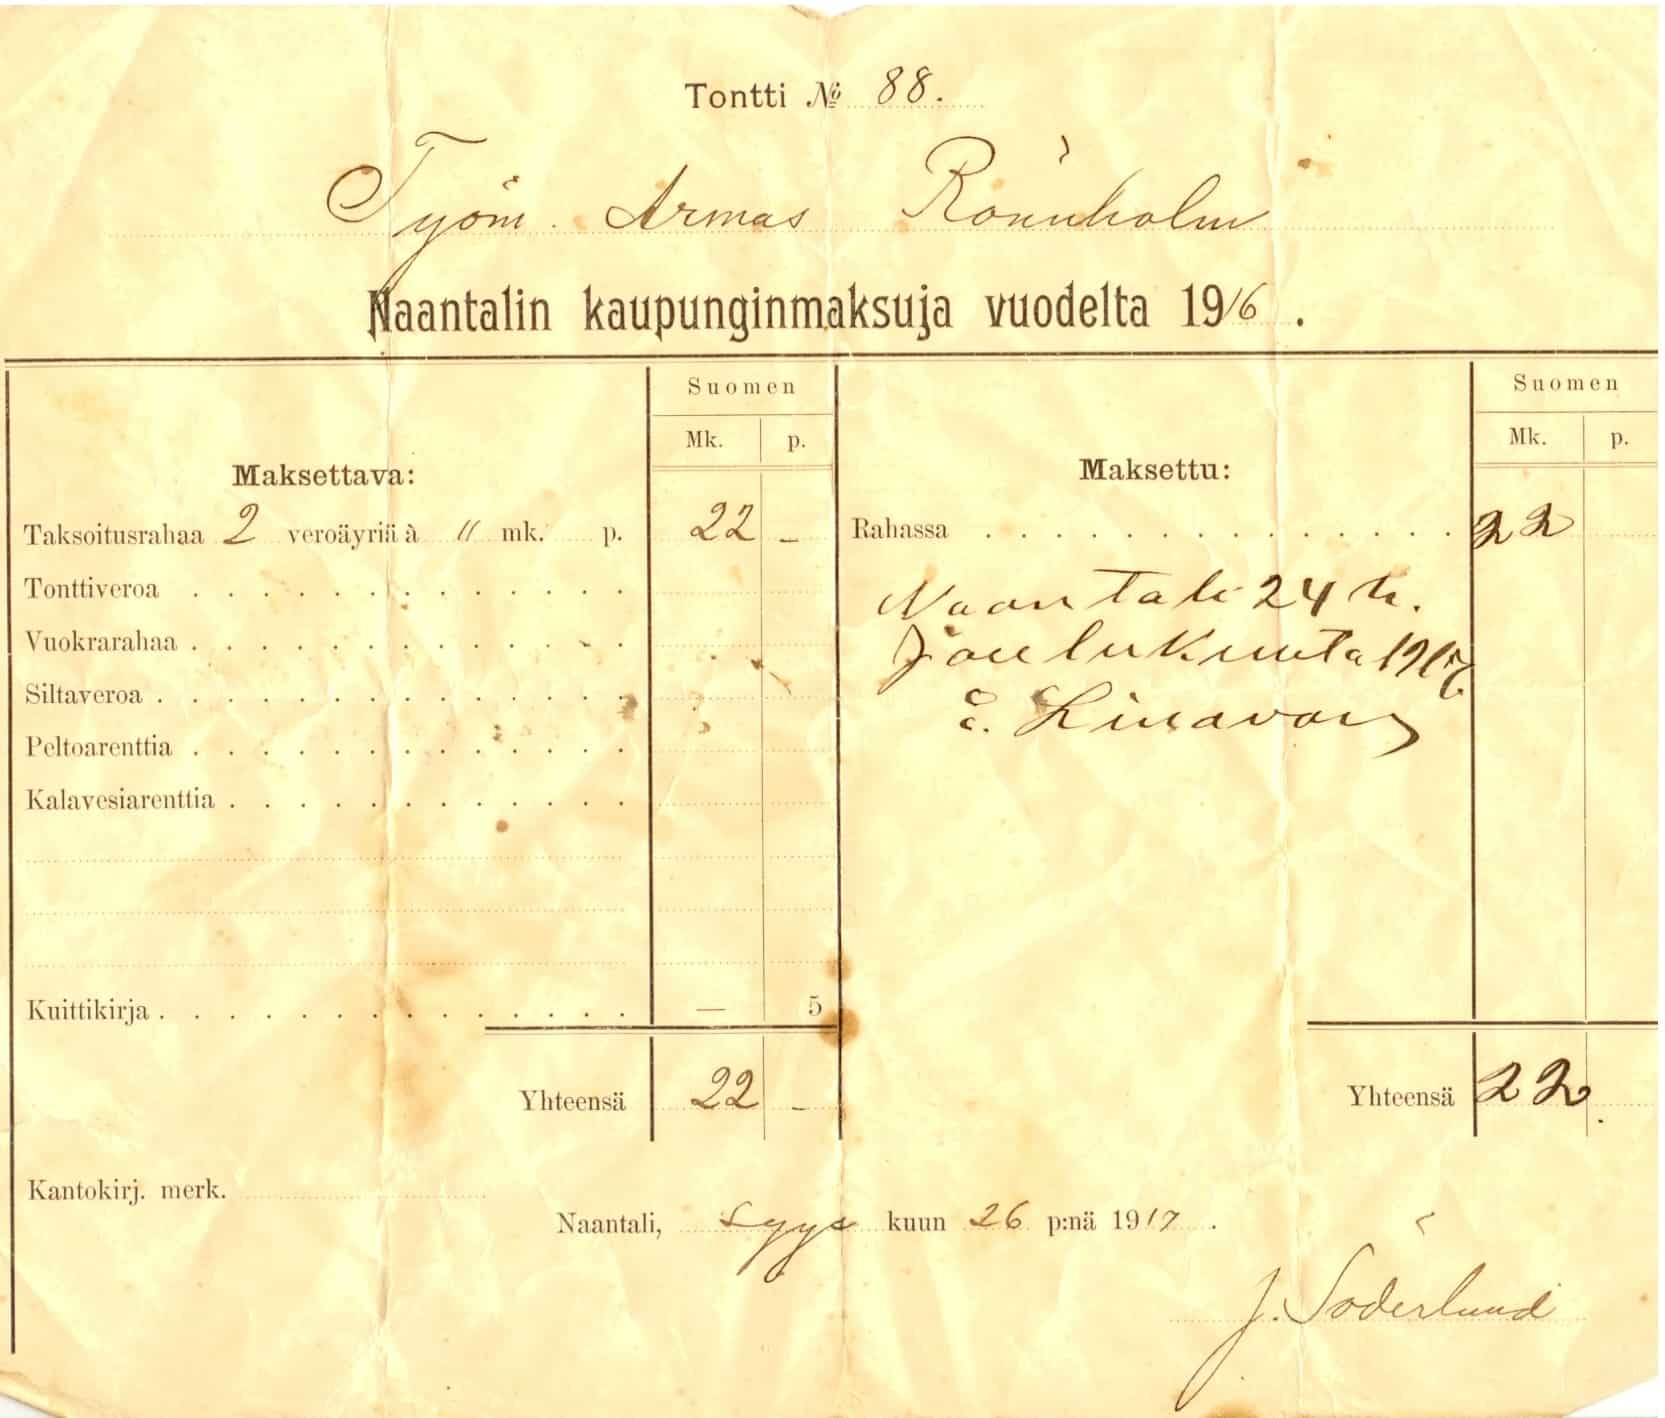 Tontti № 88.
Työm. Armas Rönnholm
Naantalin kaupunginmaksuja vuodelta 1916.
Suomen
Mk. p.
Maksettava:
Taksoitusrahaa 2 veroäyriä à 11 mk. p. 22 -
Tonttiveroa
Vuokrarahaa
Siltaveroa
Peltoarenttia
Kalavesiarenttia
Kuittikirja — 5
Yhteensä 22 -
Suomen
Mk. p.
Maksettu:
Rahassa 22
Naantali 24 p.
Joulukuuta 1917
E.
Yhteensä 22.
Kantokirj. merk.
Naantali, syys kuun 26 p:nä 1917.
J. Söderlund